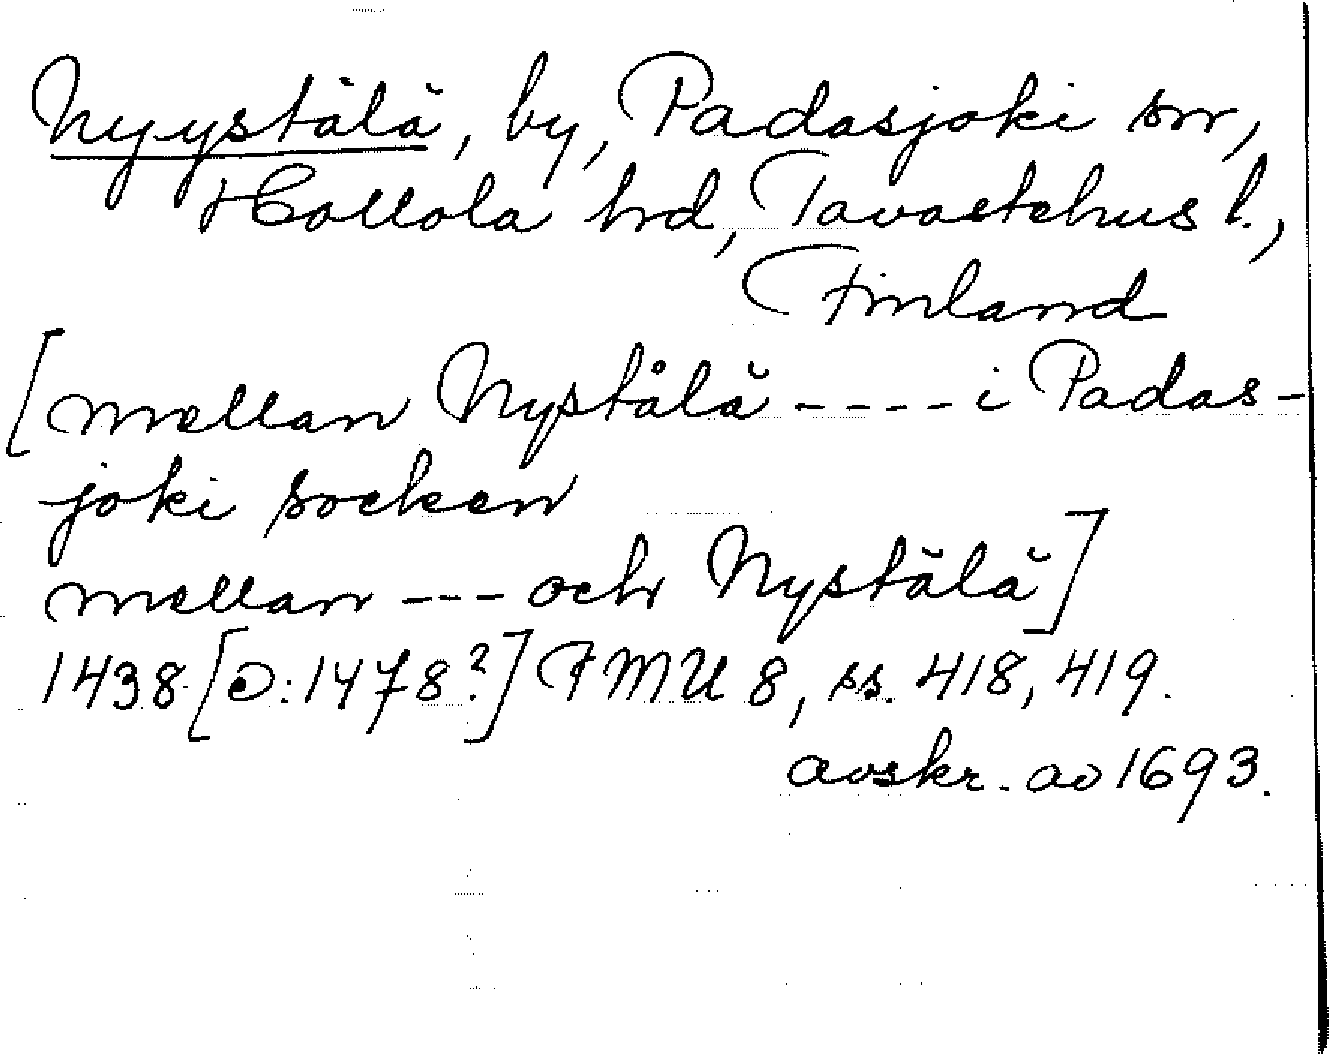 Nyystälä, by, Padasjoki sn,
Hollola hrd, Tavastehus l.,
Finland
[mellan Nystålä ---- i Padas-
joki socken
mellan --- och Nystälä]
1438 [ɔ: 1478?] FMU 8, ss. 418, 419.
avskr. av 1693.